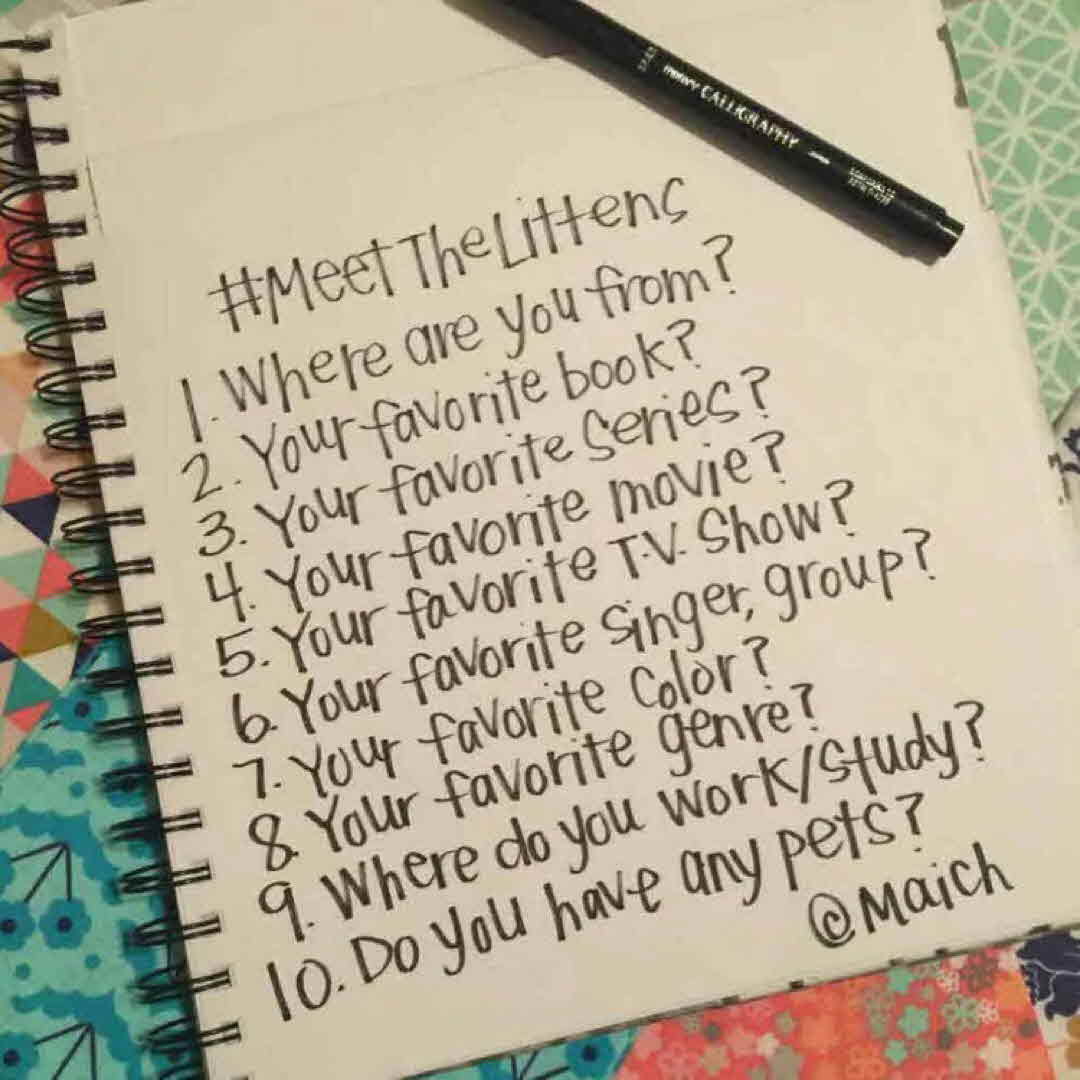 CALLIGRAPHY
#MeetTheLittens
1. Where are you from?
2. Your favorite book?
3. Your favorite series?
4. Your favorite movie?
5. Your favorite T.V. Show?
6. Your favorite singer, group?
7. Your favorite Color?
8. Your favorite genre?
9. Where do you work/study?
10. Do you have any pets?
@Maich